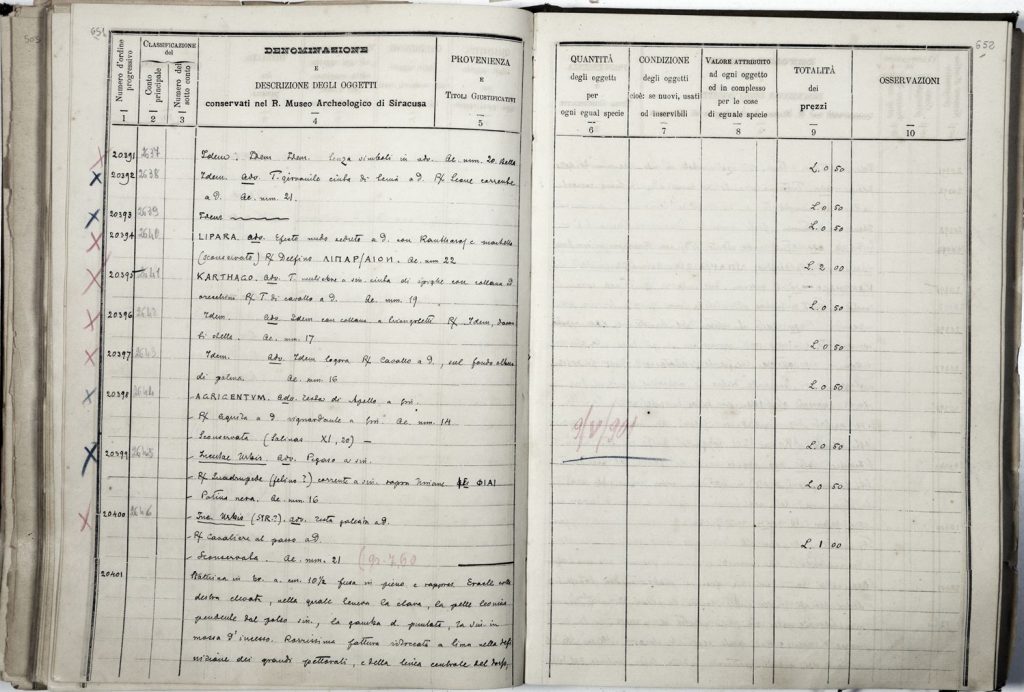 651
505
Numero d'ordine progressivo
1
CLASSIFICAZIONE del
Conto principale
2
Numero del sotto conto
3
DENOMINAZIONE
E
DESCRIZIONE DEGLI OGGETTI
conservati nel R. Museo Archeologico di Siracusa
4
PROVENIENZA
E
TITOLI GIUSTIFICATIVI
5
20391 2637 Idem. Idem Idem. senza simboli in adv. Ae. mm. 20.
20392 2638 Idem. Adv. T. giovanile cinta di a d. R/ Leone corrente
a D. Ae. mm. 21.
20393 2639 Idem
20394 2640 LIPARA. adv. Efesto nudo seduto a d. con Kantharos e martello
(sconservato) R/ Delfino ΛΙΠΑΡ/ΑΙΟΝ. Ae. mm 22
20395 2641 KARTHAGO. adv. T. muliebre a sin. cinta di spighe con collana ed
orecchini R/ T. di cavallo a d. Ae. mm. 19
20396 2642 Idem. adv. Idem con collana a triangoletti R/ Idem,
stelle. Ae. mm. 17
20397 2643 Idem. adv. Idem logora R/ Cavallo a d., sul fondo
di palma. Ae. mm. 16
20398 2644 AGRIGENTVM. adv. testa di Apollo a sin.
R/ Aquila a d riguardante a sin. Ae. mm. 14
Sconservata (Salinas XI, 20) —
20399 2645 Incertae Urbis. adv. Pegaso a sin.
R/ Quadrupede (felino?) corrente a sin. sopra ΦΙΑΙ
Patina nera. Ae. mm. 16
20400 2646 Inc. Urbis (SYR.?). adv. testa galeata a d.
R/ Cavaliere al passo a d.
Sconservata. Ae. mm. 21 (gr. 7.60
20401 Statuina in br. a. cm. 10½ fusa in pieno e rappres. Eracle colla
destra elevata, nella quale teneva la clava, la pelle leonina
pendente dal polso sin., la gamba d. puntata, la sin. in
mossa d'incesso. Rozzissima fattura ritoccata a lima nella defi-
nizione dei grandi pettorali, e della linea centrale del dorso,
652
QUANTITÀ
degli oggetti
per
ogni egual specie
6
CONDIZIONE
degli oggetti
cioè: se nuovi, usati
od inservibili
7
VALORE ATTRIBUITO
ad ogni oggetto
od in complesso
per le cose
di eguale specie
8
TOTALITÀ
dei
prezzi
9
OSSERVAZIONI
10
L. 0 50
L. 0 50
L. 0 50
L. 2 00
L. 0 50
L. 0 50
L. 0 50
L. 0 50
L. 0 50
L. 1 00